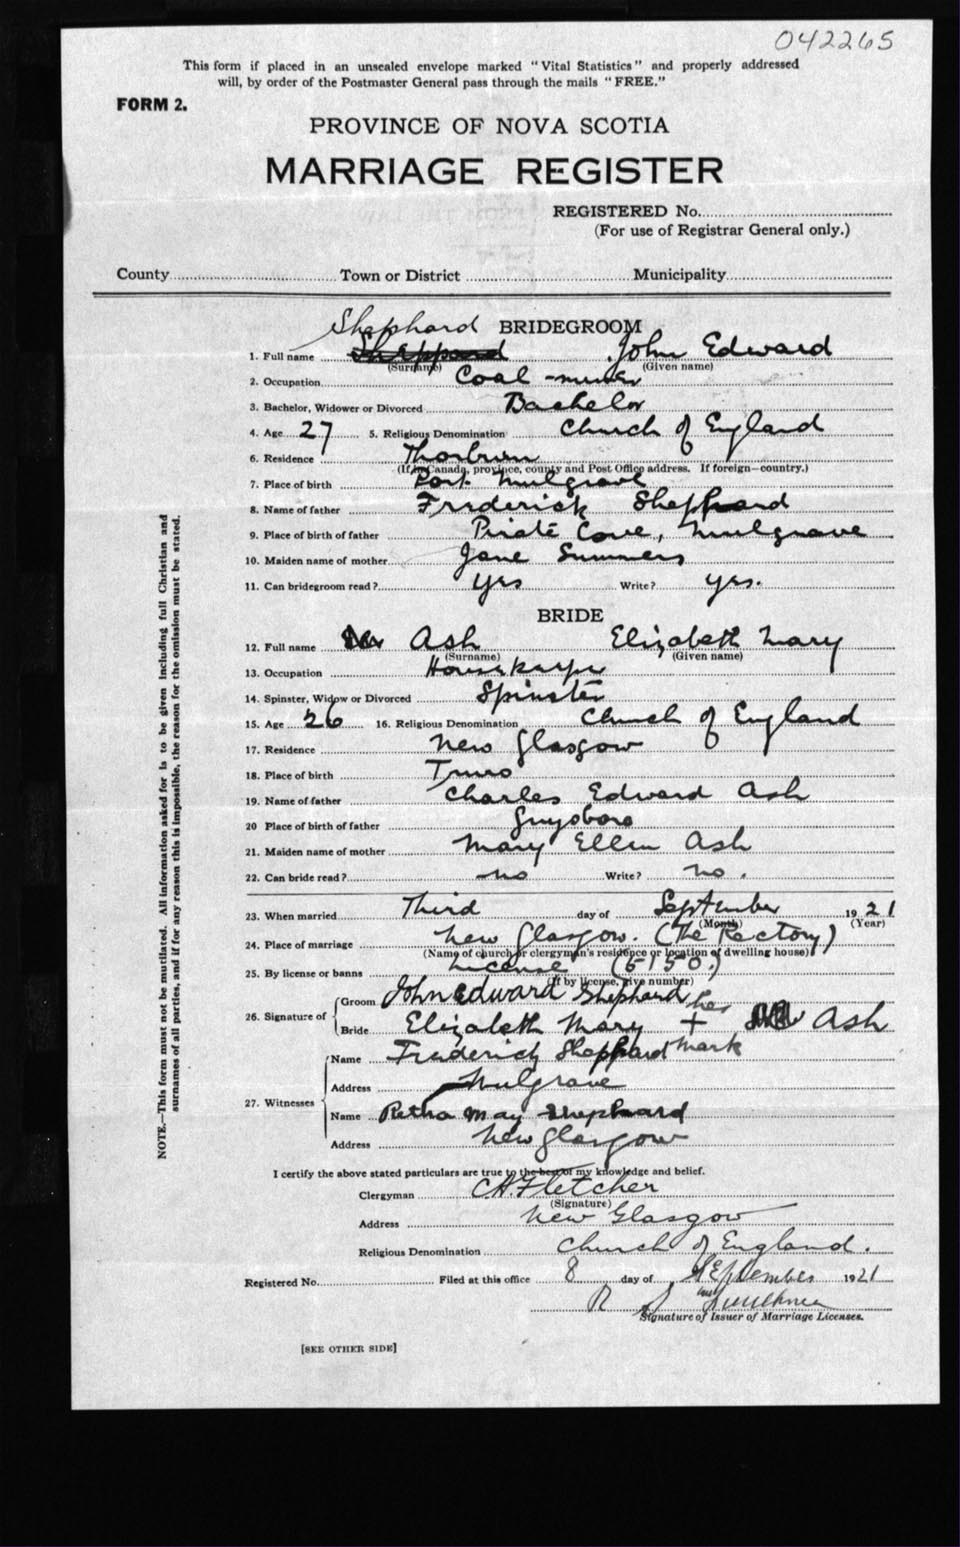 042265
This form if placed in an unsealed envelope marked "Vital Statistics" and properly addressed
will, by order of the Postmaster General pass through the mails "FREE."
FORM 2.
PROVINCE OF NOVA SCOTIA
MARRIAGE REGISTER
REGISTERED No.
(For use of Registrar General only.)
County Town or District Municipality
Shephard BRIDEGROOM
1. Full name Sheppard John Edward
(Surname) (Given name)
2. Occupation Coal-miner
3. Bachelor, Widower or Divorced Bachelor
4. Age 27 5. Religious Denomination Church of England
6. Residence Thorburn
(If in Canada, province, county and Post Office address. If foreign—country.)
7. Place of birth Port Mulgrave
8. Name of father Frederick Shephard
9. Place of birth of father Pirate Cove, Mulgrave
10. Maiden name of mother Jane Summers
11. Can bridegroom read? yes Write? yes.
BRIDE
12. Full name Ash Elizabeth Mary
(Surname) (Given name)
13. Occupation Housekeeper
14. Spinster, Widow or Divorced Spinster
15. Age 26 16. Religious Denomination Church of England
17. Residence New Glasgow
18. Place of birth Truro
19. Name of father Charles Edward Ash
20 Place of birth of father Guysboro
21. Maiden name of mother Mary Ellen Ash
22. Can bride read? no Write? no.
23. When married Third day of September 1921
(Month) (Year)
24. Place of marriage New Glasgow. (The Rectory)
(Name of church or clergyman's residence or location of dwelling house)
25. By license or banns License (5150.)
(If by license, give number)
26. Signature of Groom John Edward Shephard
her
Bride Elizabeth Mary + Ash
mark
27. Witnesses Name Frederick Shephard
Address Mulgrave
Name Retha May Shephard
Address New Glasgow
I certify the above stated particulars are true to the best of my knowledge and belief.
Clergyman C.A. Fletcher
(Signature)
Address New Glasgow
Religious Denomination Church of England.
Registered No. Filed at this office 8 day of September 1921
R
Signature of Issuer of Marriage Licenses.
[SEE OTHER SIDE]
NOTE.—This form must not be mutilated. All information asked for is to be given including full Christian and
surnames of all parties, and if for any reason this is impossible, the reason for the omission must be stated.